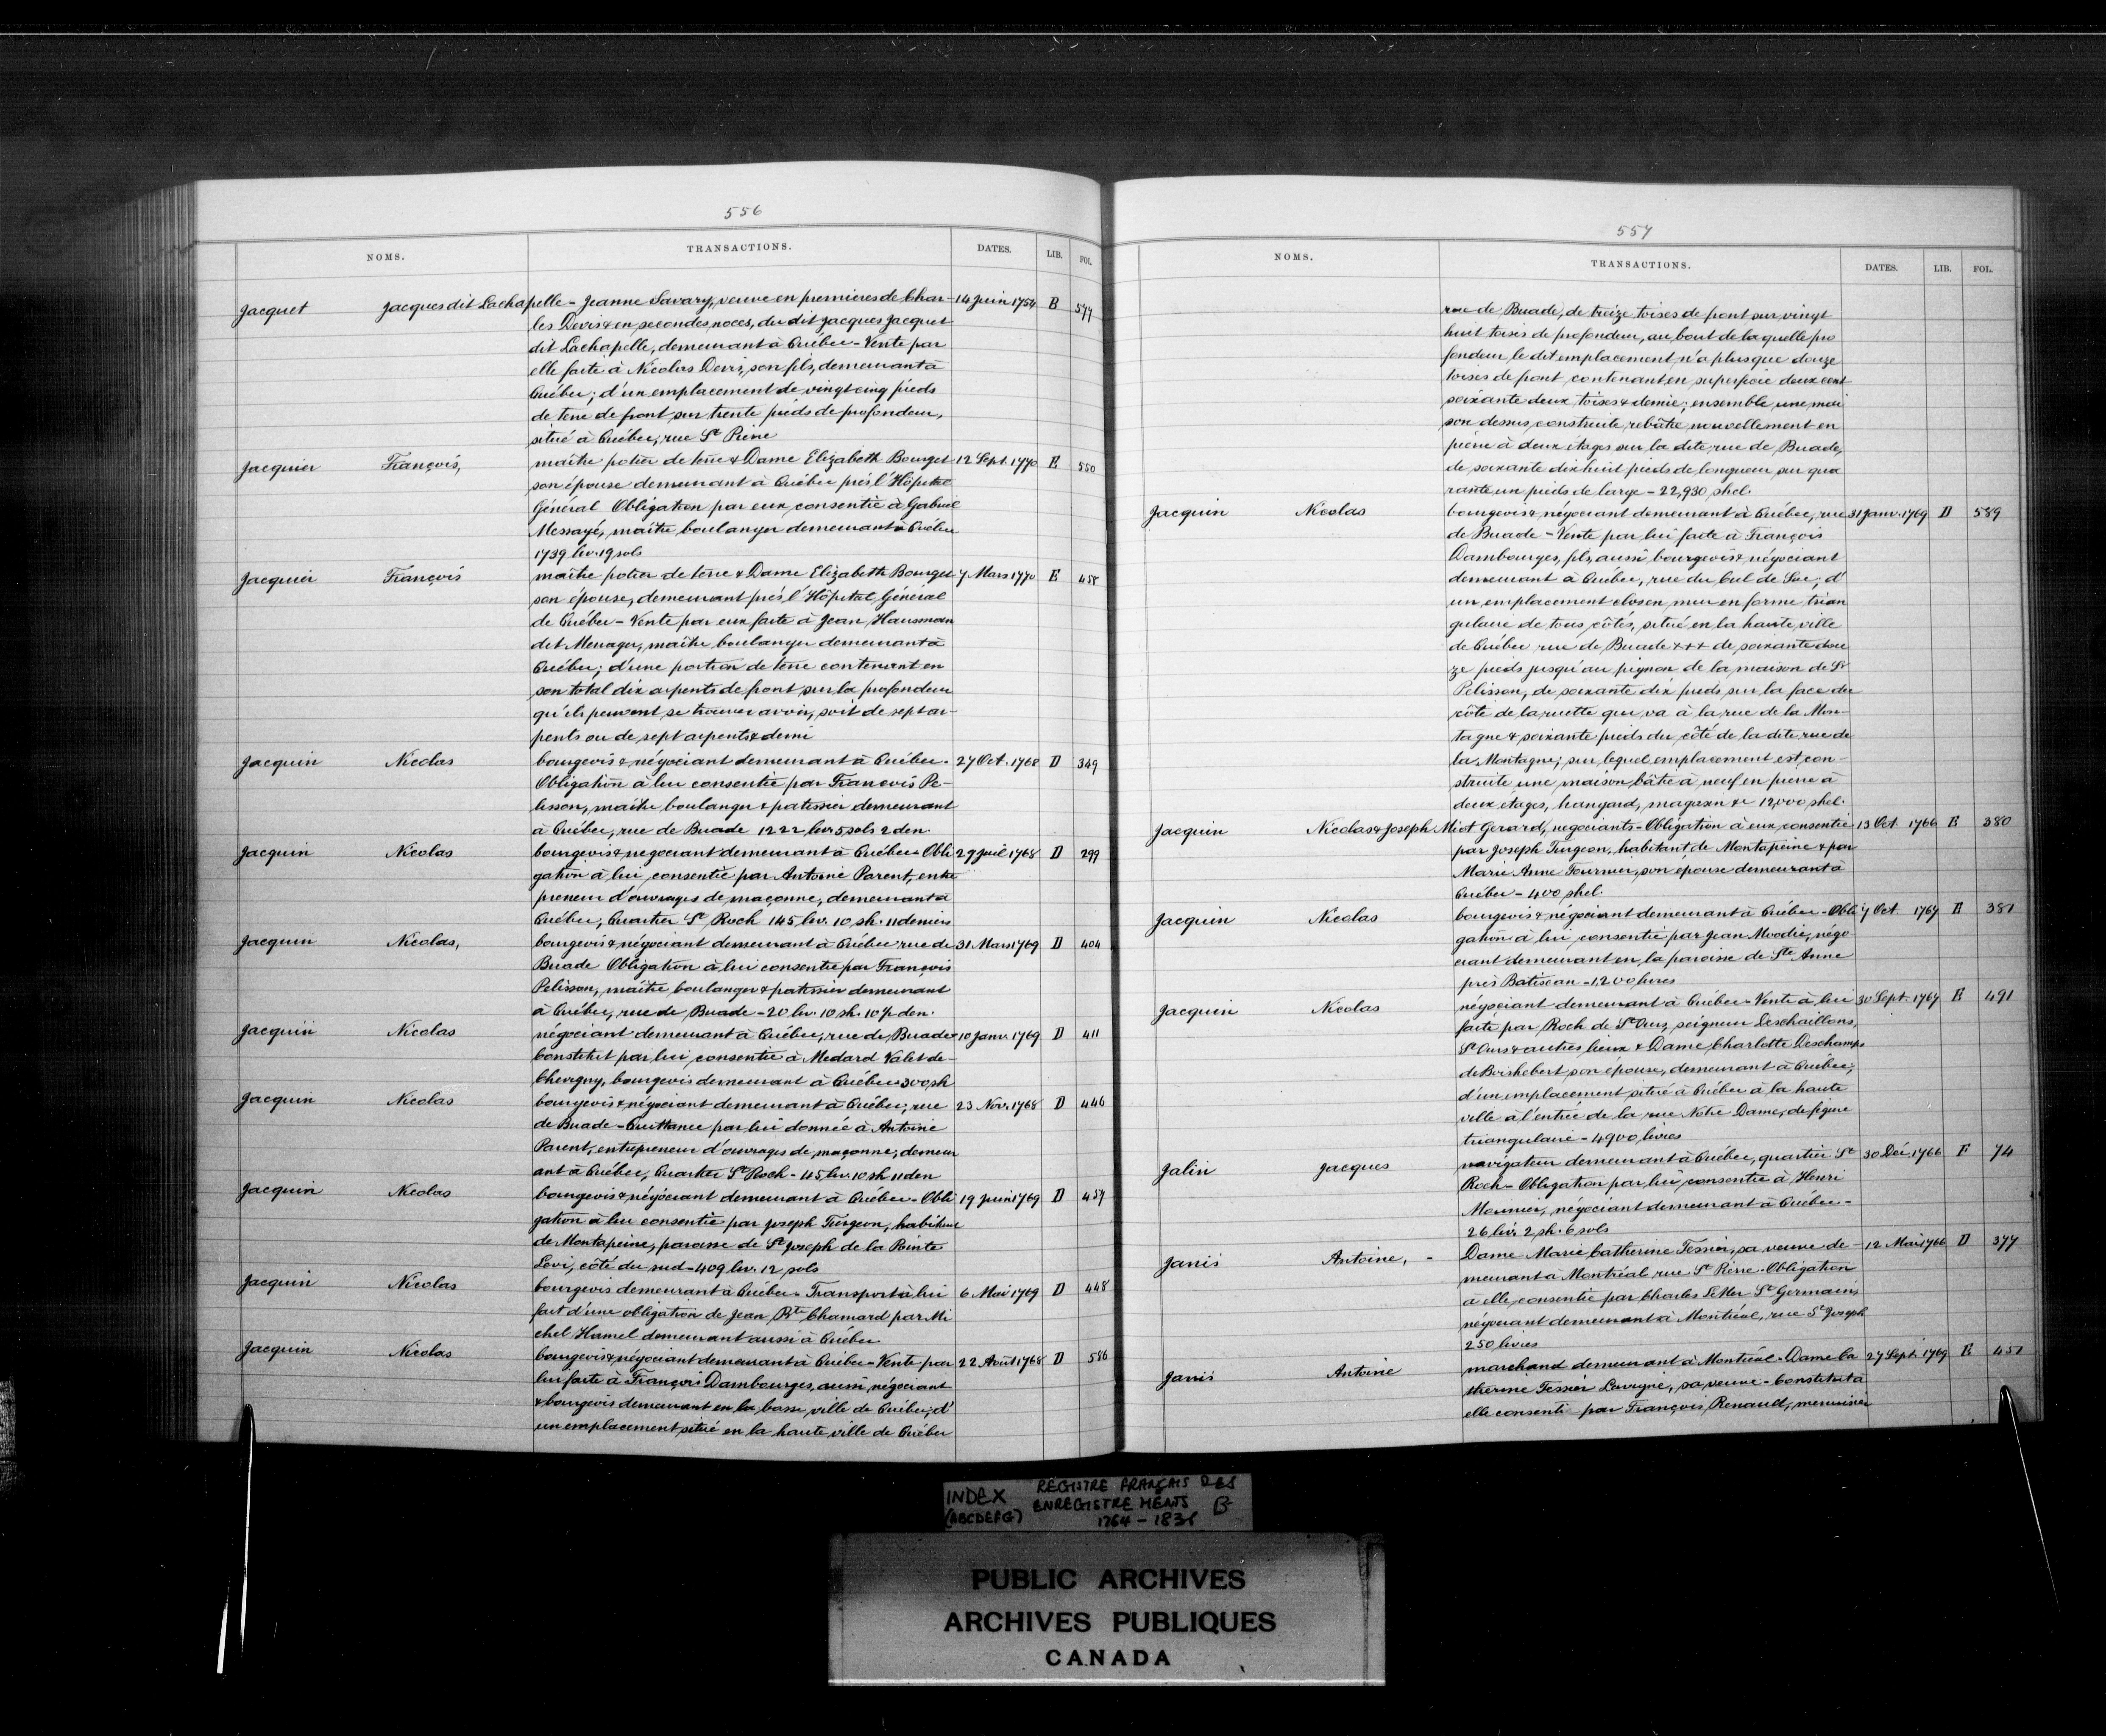 556
NOMS. TRANSACTIONS. DATES. LIB. FOL.
Jacquet Jacques dit Lachapelle - Jeanne Savary, veuve en premieres de Char- 14 Juin 1754 B 577
les Devis & en secondes noces, du dit Jacques Jacquet
dit Lachapelle, demeurant à Québec - Vente par
elle faite à Nicolas Devis, son fils, demeurant à
Québec; d'un emplacement de vingt cinq pieds
de terre de front sur trente pieds de profondeur,
situé à Québec, rue St Pierre
Jacquier François, maître potier de terre & Dame Elizabeth Bourget 12 Sept. 1770 E 550
son épouse demeurant à Québec près l'Hôpital
Général Obligation par eux consentie à Gabriel
Messayé, maître boulanger demeurant à Québec
1739 liv. 19 sols
Jacquier François maître potier de terre & Dame Elizabeth Bourget 7 Mars 1770 E 458
son épouse, demeurant près l'Hôpital Général
de Québec - Vente par eux faite à Jean Hausman
dit Menager, maître boulanger demeurant à
Québec; d'une portion de terre contenant en
son total dix arpents de front sur la profondeur
qu'ils peuvent se trouver avoir, soit de sept ar-
pents ou de sept arpents & demi
Jacquin Nicolas bourgeois & négociant demeurant à Québec. 27 Oct. 1768 D 349
Obligation à lui consentie par François Pe-
lisson, maître boulanger & patissier demeurant
à Québec, rue de Buade 1222 liv. 5 sols 2 den.
Jacquin Nicolas bourgeois & negociant demeurant à Québec - Obli 29 Juil 1768 D 299
gation à lui consentie par Antoine Parent, entre
preneur d'ouvrages de maçonne, demeurant à
Québec, Quartier St Roch 145 liv. 10 sh. 11 deniers
Jacquin Nicolas, bourgeois & négociant demeurant à Québec rue de 31 Mars 1769 D 404
Buade Obligation à lui consentie par François
Pelisson, maître boulanger & patissier demeurant
à Québec, rue de Buade - 20 liv. 10 sh. 10 ½ den.
Jacquin Nicolas négociant demeurant à Québec, rue de Buade 10 Janv. 1769 D 411
Constitut par lui consentie à Medard Valet de-
Chevigny, bourgeois demeurant à Québec 300 sh
Jacquin Nicolas bourgeois & négociant demeurant à Québec, rue 23 Nov. 1768 D 446
de Buade - Quittance par lui donnée à Antoine
Parent, entrepreneur d'ouvrages de maçonne; demeur
ant à Québec, Quartier St Roch - 45 liv. 10 sh 11 den
Jacquin Nicolas bourgeois & négociant demeurant à Québec - Obli 19 Juin 1769 D 459
gation à lui consentie par Joseph Turgeon, habitant
de Montapeine, paroisse de St Joseph de la Pointe
Levi, côté du sud - 409 liv. 12 sols
Jacquin Nicolas bourgeois demeurant à Québec - Transport à lui 6 Mai 1769 D 448
fait d'une obligation de Jean Bte Chamard par Mi
chel Hamel demeurant aussi à Québec
Jacquin Nicolas bourgeois & négociant demeurant à Québec - Vente par 22 Août 1768 D 586
lui faite à François Dambourges, aussi négociant
& bourgeois demeurant en la basse ville de Québec; d'
un emplacement situé en la haute ville de Québec
557
NOMS. TRANSACTIONS. DATES. LIB. FOL.
rue de Buade, de treize toises de front sur vingt
huit toises de profondeur, au bout de laquelle pro
fondeur le dit emplacement n'a plus que douze
toises de front contenant en superficie deux cent
soixante deux toises & demie; ensemble une mai
son dessus construite rebâtie nouvellement en
pierre à deux étages sur la dite rue de Buade,
de soixante dix huit pieds de longueur sur qua
rante un pieds de large - 22,930 shel.
Jacquin Nicolas bourgeois & négociant demeurant à Québec, rue 31 Janv. 1769 D 589
de Buade - Vente par lui faite à François
Dambourges, fils, aussi bourgeois & négociant
demeurant à Québec, rue du Cul de Sac; d'
un emplacement clos en mur en forme trian
gulaire de tous côtés, situé en la haute ville
de Québec rue de Buade +++ de soixante dou
ze pieds jusqu'au pignon de la maison de Sr
Pelisson, de soixante dix pieds sur la face du
côté de la ruette qui va à la rue de la Mon-
tagne & soixante pieds du côté de la dite rue de
la Montagne; sur lequel emplacement est con-
struite une maison bâtie à neuf en pierre à
deux étages, hangard, magasin &c 12,000 shel.
Jacquin Nicolas & Joseph Miot Gerard, negociants - Obligation à eux consentie 13 Oct. 1766 E 380
par Joseph Turgeon, habitant de Montapeine & par
Marie Anne Fournier, son épouse demeurant à
Québec - 400 shel.
Jacquin Nicolas bourgeois & négociant demeurant à Québec - Obli 7 Oct. 1767 E 381
gation à lui consentie par Jean Moodie, négo
ciant demeurant en la paroisse de Ste Anne
près Batiscan - 1,200 livres
Jacquin Nicolas négociant demeurant à Québec - Vente à lui 30 Sept. 1767 E 491
faite par Roch de St Ours, seigneur Deschaillons,
St Ours & autres lieux & Dame Charlotte Deschamps
de Boishebert son épouse, demeurant à Québec,
d'un emplacement situé à Québec à la haute
ville à l'entrée de la rue Notre Dame, de figure
triangulaire - 4900 livres
Jalin Jacques navigateur demeurant à Québec, quartier St 30 Déc 1766 F 74
Roch - Obligation par lui consentie à Henri
Meunier, négociant demeurant à Québec -
26 liv. 2 sh. 6 sols
Janis Antoine, - Dame Marie Catherine Tessier, sa veuve de- 12 Mai 1766 D 377
meurant à Montréal rue St Pierre - Obligation
à elle consentie par Charles St Germain,
négociant demeurant à Montréal, rue St Joseph
250 livres
Janis Antoine marchand demeurant à Montréal - Dame Ca 27 Sept. 1769 E 451
therine Tessier Lavigne, sa veuve - Constitut à
elle consenti par François Renauld, menuisier
INDEX REGISTRE FRANÇAIS DES
(ABCDEFG) ENREGISTREMENTS B
1764 - 183
PUBLIC ARCHIVES
ARCHIVES PUBLIQUES
CANADA